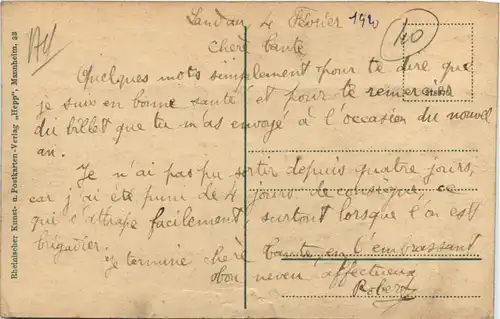 Landau 4 Février 1920
40
Chère tante
Quelques mots simplement pour te dire que
je suis en bonne santé et pour te remercier
du billet que tu m'as envoyé à l'occasion du nouvel
an.
Je n'ai pas pu sortir depuis quatre jours,
car j'ai été puni de 4 jours de consigne, ce
qui s'attrape facilement, surtout lorsque l'on est
brigadier.
Je termine chère tante en t'embrassant
ton neveu affectueux
Robert
Rheinischer Kunst- u. Postkarten-Verlag „Hepp", Mannheim, 33